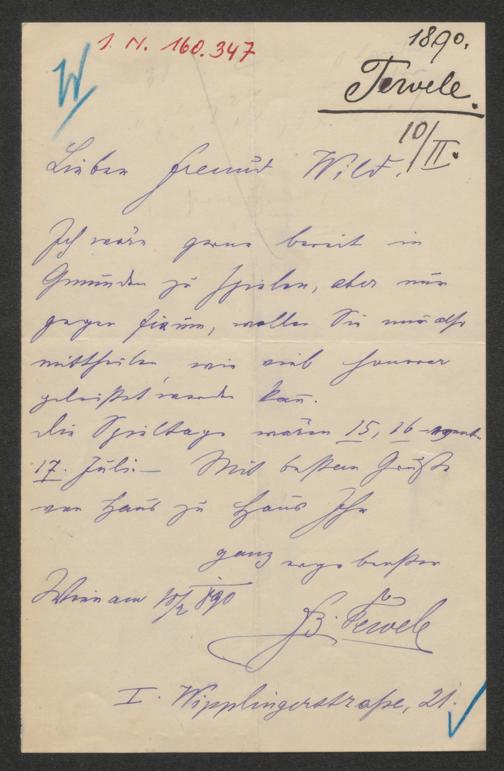 I. N. 160.347
1890.
W
Tewele.
10/II.
Lieber Freund Wild!
Ich wäre gerne bereit in
Gmunden zu spielen, aber nur
gegen fixum, wollen Sie mir
mittheilen wie viel honorar
geleistet werden kan.
die Spieltage wären 15, 16
17. Juli. – Mit bestem Gruße
von Haus zu Haus Ihr
ganz ergebenster
Wien am 10/2 890
Tewele
I. Wipplingerstraße, 21.